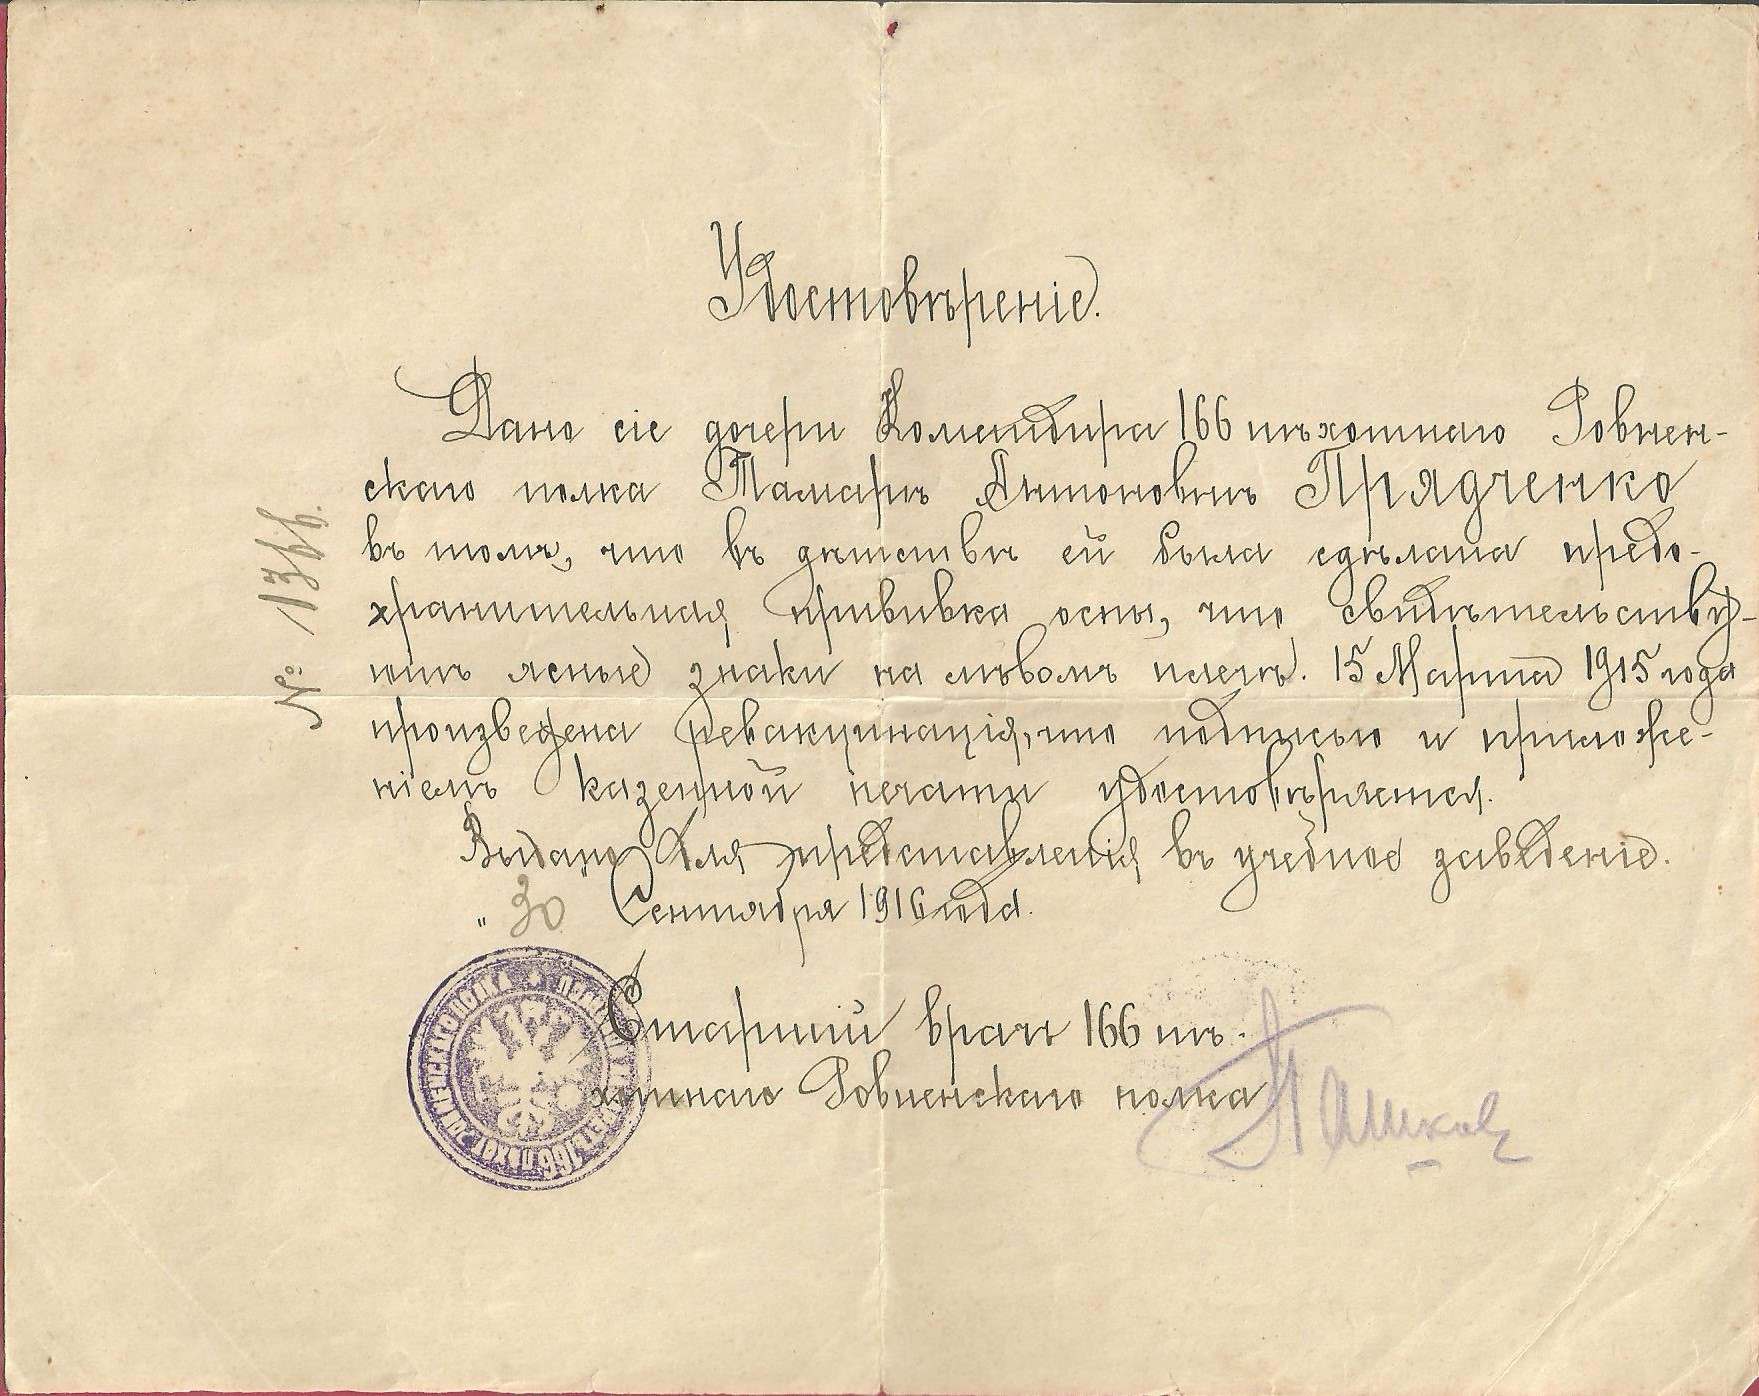 Удостовѣреніе.
Дано сіе дочери Командира 166 пѣхотнаго Ровнен-
скаго полка Тамарѣ Антоновнѣ Прядченко
въ томъ, что въ дѣтствѣ ей была сдѣлана предо-
хранительная прививка оспы, что свидѣтельству-
ютъ ясные знаки на лѣвомъ плечѣ. 15 Марта 1915 года
произведена ревакцинація, что подписью и приложе-
ніемъ казенной печати удостовѣряется.
Выдано для представленія въ учебное заведеніе.
"30 Сентября 1916 года.
Старшій врачъ 166 пѣ-
хотнаго Ровненскаго полка
№ 1366.
166 ПѢХОТ. РОВНЕНСКАГО ПОЛКА